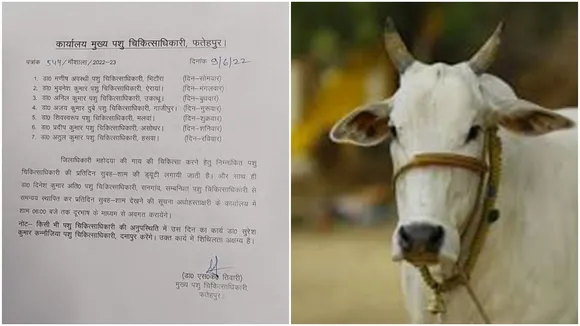 कार्यालय मुख्य पशु चिकित्साधिकारी, फतेहपुर।
पत्रांक ९५५/गौशाला/2022-23 दिनांक 9/6/22
1. डा० मनीष अवस्थी पशु चिकित्साधिकारी, भिटौरा (दिन-सोमवार)
2. डा० भुवनेश कुमार पशु चिकित्साधिकारी, ऐरायां (दिन-मगलवार)
3. डा० अनिल कुमार पशु चिकित्साधिकारी, उकाथू। (दिन-बुधवार)
4. डा० अजय कुमार दुबे पशु चिकित्साधिकारी, गाजीपुर। (दिन-गुरूवार)
5. डा० शिवस्वरूप पशु चिकित्साधिकारी, मलवां। (दिन-शुक्रवार)
6. डा० प्रदीप कुमार पशु चिकित्साधिकारी, असोथर। (दिन-शनिवार)
7. डा० अतुल कुमार पशु चिकित्साधिकारी, हसवा। (दिन-रविवार)
जिलाधिकारी महोदया की गाय की चिकित्सा करने हेतु निम्नांकित पशु
चिकित्साधिकारी की प्रतिदिन सुबह-शाम की ड्यूटी लगायी जाती है। और साथ ही
डा० दिनेश कुमार पशु चिकित्साधिकारी, सनगांव, सम्बन्धित पशु चिकित्साधिकारी से
समन्वय स्थापित कर प्रतिदिन सुबह-शाम देखने की सूचना अधोहस्ताक्षरी के कार्यालय में
शाम 06:00 बजे तक दूरभाष के माध्यम से अवगत करायेंगे।
नोट- किसी भी पशु चिकित्साधिकारी की अनुपस्थिति में उस दिन का कार्य डा० सुरेश
कुमार कन्नौजिया पशु चिकित्साधिकारी, दमापुर करेंगे। उक्त कार्य में शिथिलता अक्षम्य है।
(डा० एस०के० तिवारी)
मुख्य पशु चिकित्साधिकारी,
फतेहपुर।